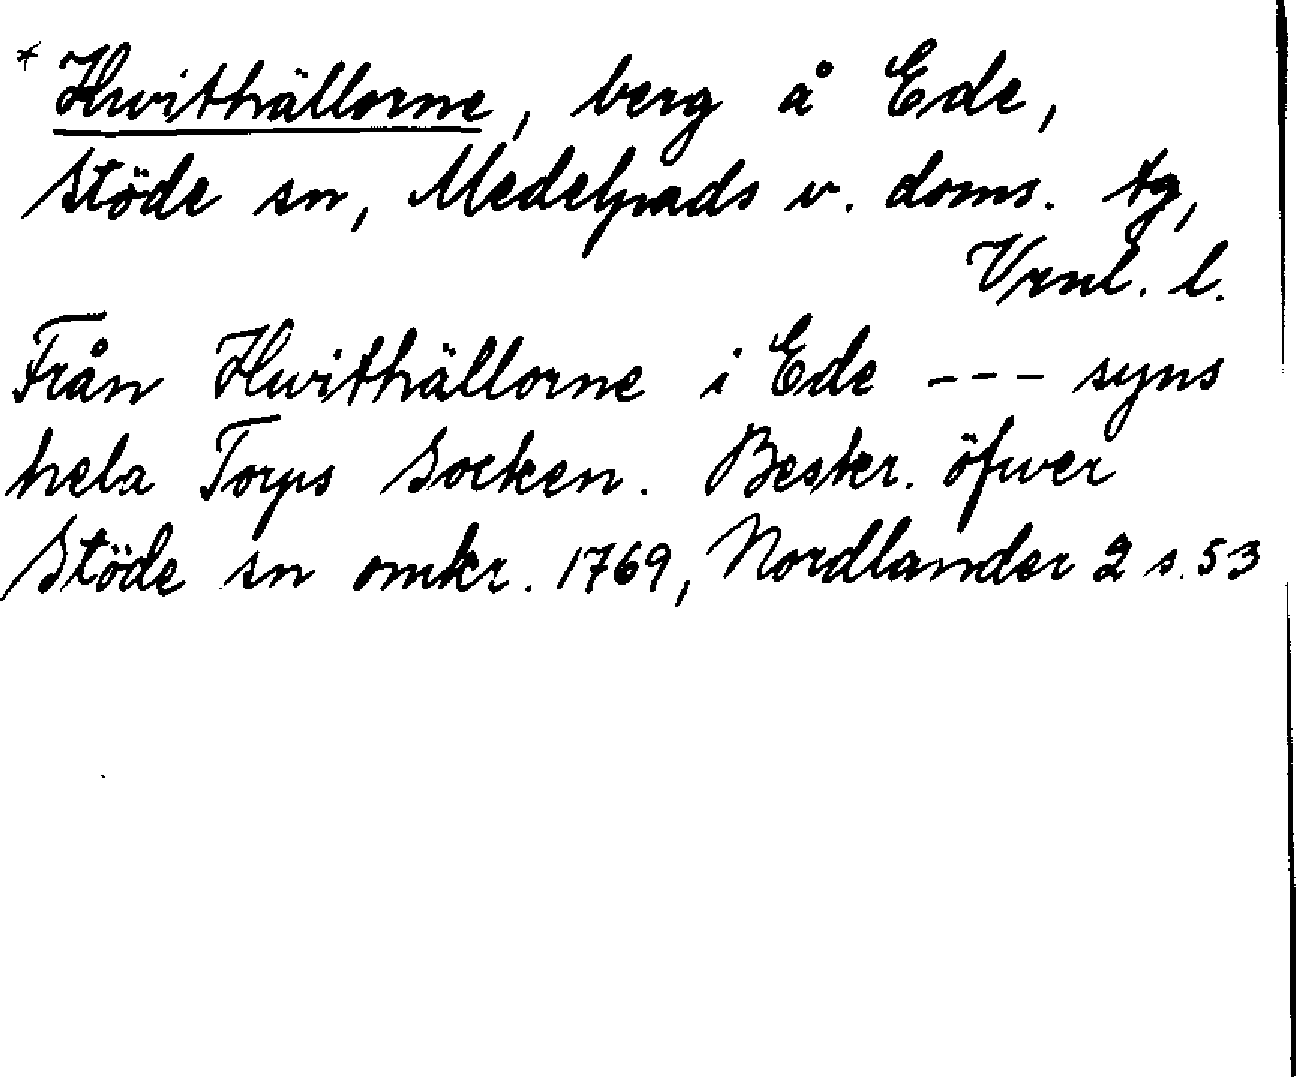 * Hwithällorne, berg å Ede,
Stöde sn, Medelpads v. doms. tg,
Vrnl. l.
Från Hwithällorne i Ede --- syns
hela Torps Socken. Beskr. öfwer
Stöde sn omkr. 1769, Nordlander 2 s. 53